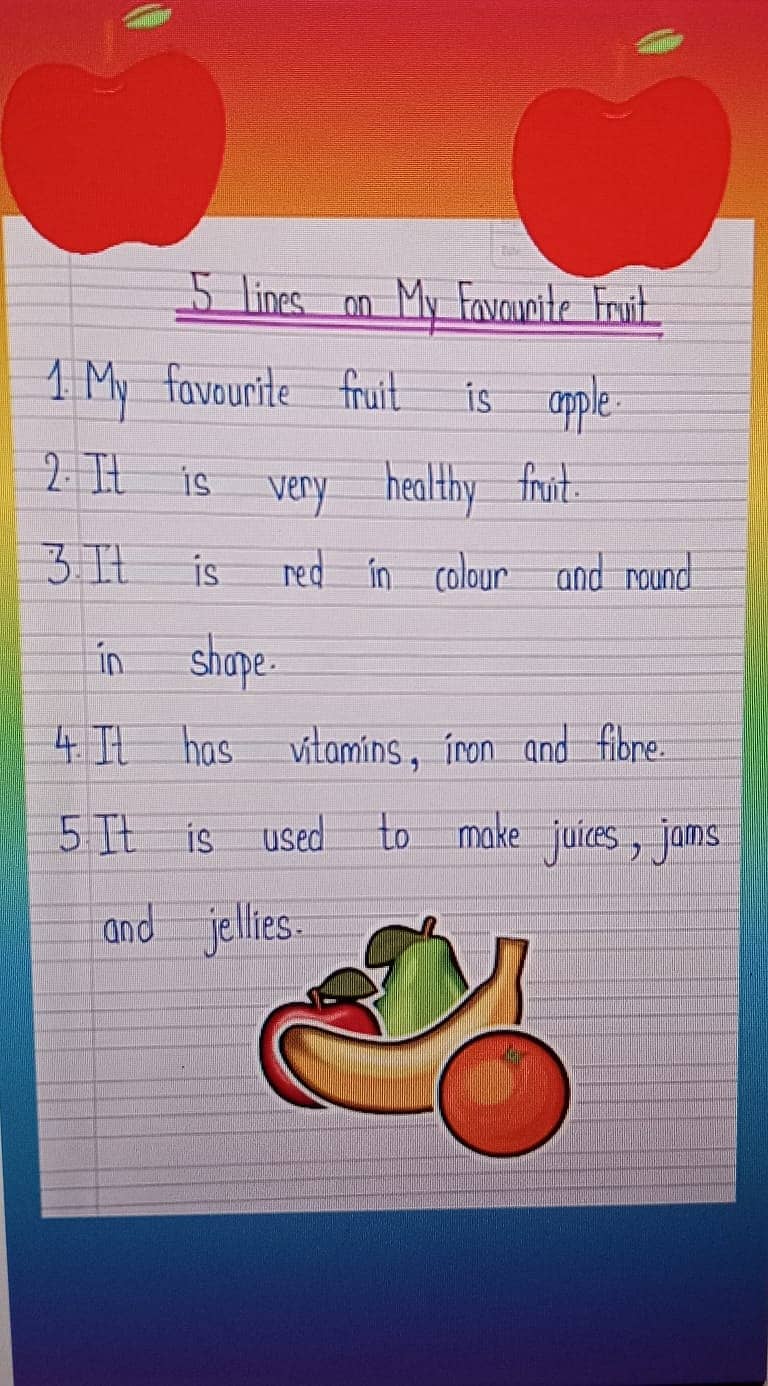 5 lines on My Favourite Fruit
1. My favourite fruit is apple.
2. It is very healthy fruit.
3. It is red in colour and round
in shape.
4. It has vitamins, iron and fibre.
5. It is used to make juices, jams
and jellies.